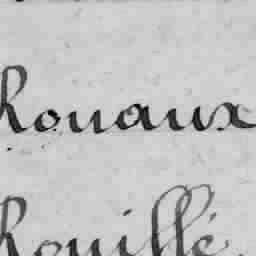 houaux
houillé